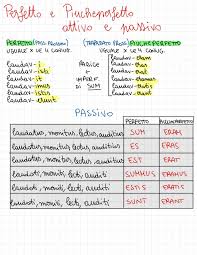 Perfetto e Piuccheperfetto
attivo e passivo
PERFETTO (PASS. PROSSIMO) (TRAPASSATO PROSS) PIUCHEPERFETTO
USUALE X LE 4 CONIUG. USUALE X LE 4 CONIUG.
laudav-i laudav-eram
laudav-isti RADICE laudav-eras
laudav-it + laudav-erat
laudav-imus IMPERF. laudav-eramus
laudav-istis DI SUM laudav-eratis
laudav-erunt laudav-erant
PASSIVO
PERFETTO PIUCCHEPERFETTO
laudatus, monitus, lectus, auditus SUM ERAM
laudatus, monitus, lectus, auditus ES ERAS
laudatus, monitus, lectus, auditus EST ERAT
laudati, moniti, lecti, auditi SUMMUS ERAMUS
laudati, moniti, lecti, auditi ESTIS ERATIS
laudati, moniti, lecti, auditi SUNT ERANT